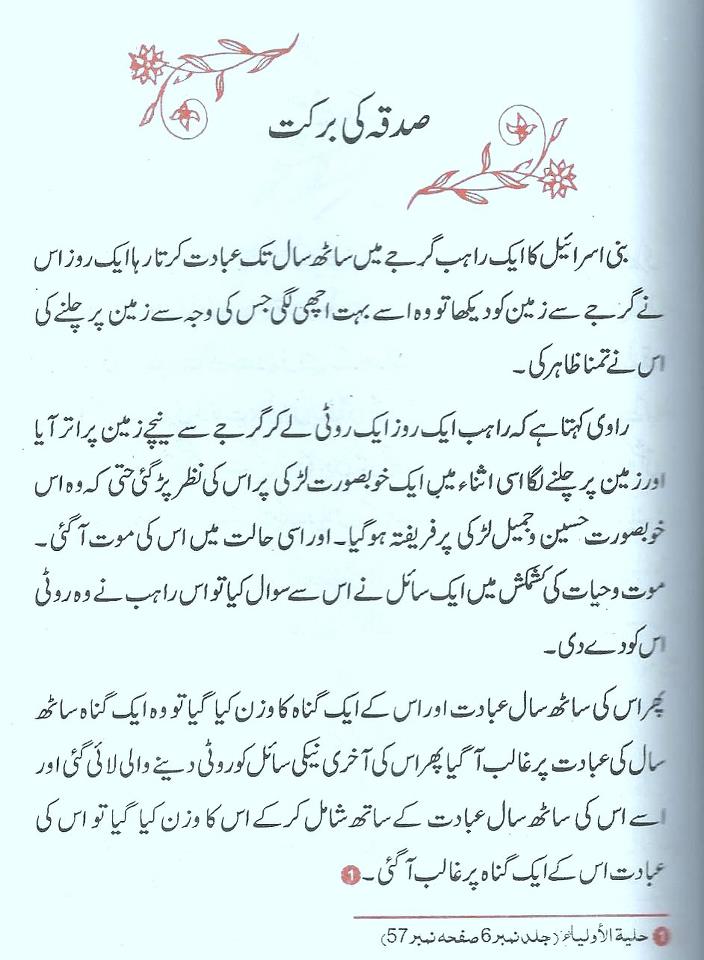 صدقہ کی برکت
بنی اسرائیل کا ایک راہب گرجے میں ساٹھ سال تک عبادت کرتا رہا ایک روز اس
نے گرجے سے زمین کو دیکھا تو وہ اسے بہت اچھی لگی جس کی وجہ سے زمین پر چلنے کی
اس نے تمنا ظاہر کی ۔
راوی کہتا ہے کہ راہب ایک روز ایک روٹی لے کر گرجے سے نیچے زمین پر اتر آیا
اور زمین پر چلنے لگا اسی اثناء میں ایک خوبصورت لڑکی پر اس کی نظر پڑ گئی حتی کہ وہ اس
خوبصورت حسین و جمیل لڑکی پر فریفتہ ہو گیا ۔ اور اسی حالت میں اس کی موت آ گئی ۔
موت و حیات کی کشمکش میں ایک سائل نے اس سے سوال کیا تو اس راہب نے وہ روٹی
اس کو دے دی ۔
پھر اس کی ساٹھ سال عبادت اور اس کے ایک گناہ کا وزن کیا گیا تو وہ ایک گناہ ساٹھ
سال کی عبادت پر غالب آ گیا پھر اس کی آخری نیکی سائل کو روٹی دینے والی لائی گئی اور
اسے اس کی ساٹھ سال عبادت کے ساتھ شامل کر کے اس کا وزن کیا گیا تو اس کی
عبادت اس کے ایک گناہ پر غالب آ گئی ۔ 1
1 حلیۃ الأولیاء (جلد نمبر 6 صفحہ نمبر 57)